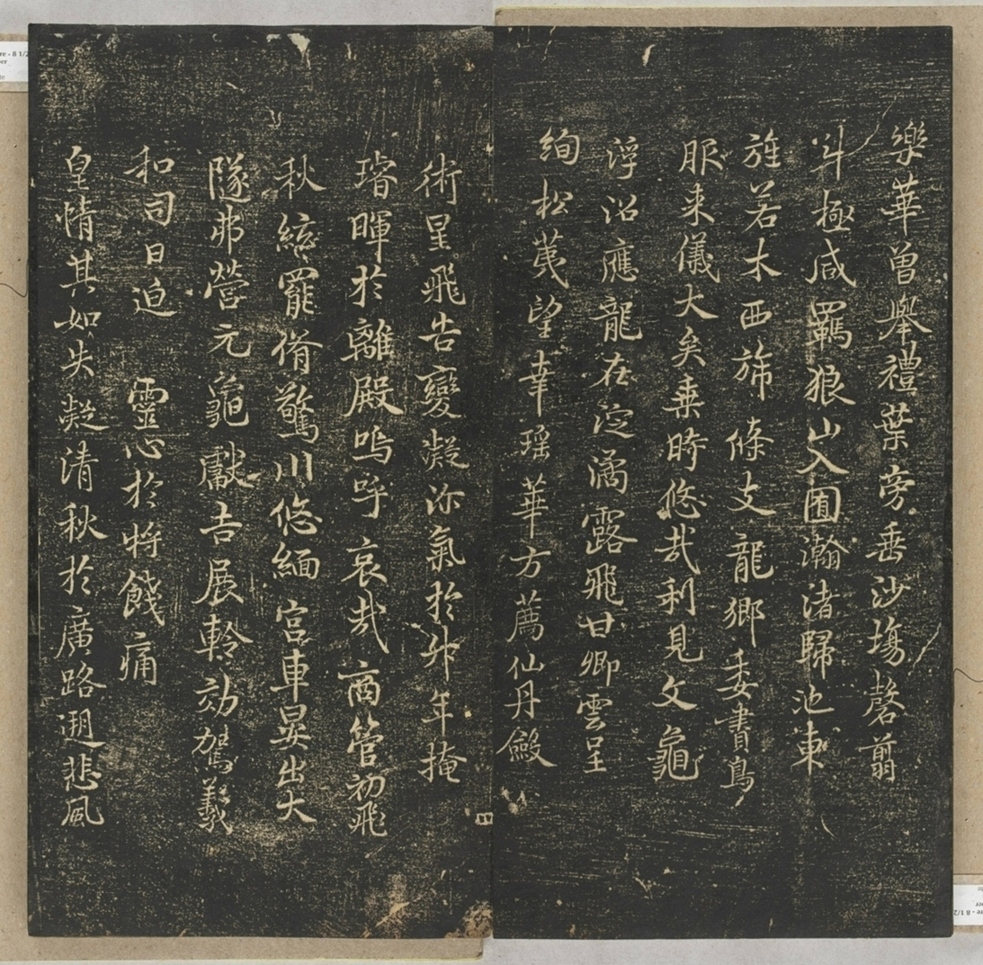 樂華曾舉禮葉旁垂沙塲罄翦
斗極咸羈狼山入囿瀚渚歸池東
旌若木西旆條支龍鄉委賮鳥
服来儀大矣乘時悠哉利見文龜
浮沼應龍在淀潏露飛甘卿雲呈
絢松荑望幸瑶華方薦仙丹斂
術星飛告變凝沴氣於升年掩
璿暉於離殿嗚呼哀哉商管初飛
秋綅罷脩驚川悠緬宮車晏出大
隧弗營元龜獻吉展軨効駕羲
和司日迫 靈心於將餞痛
皇情其如失凝清秋於廣路遡悲風